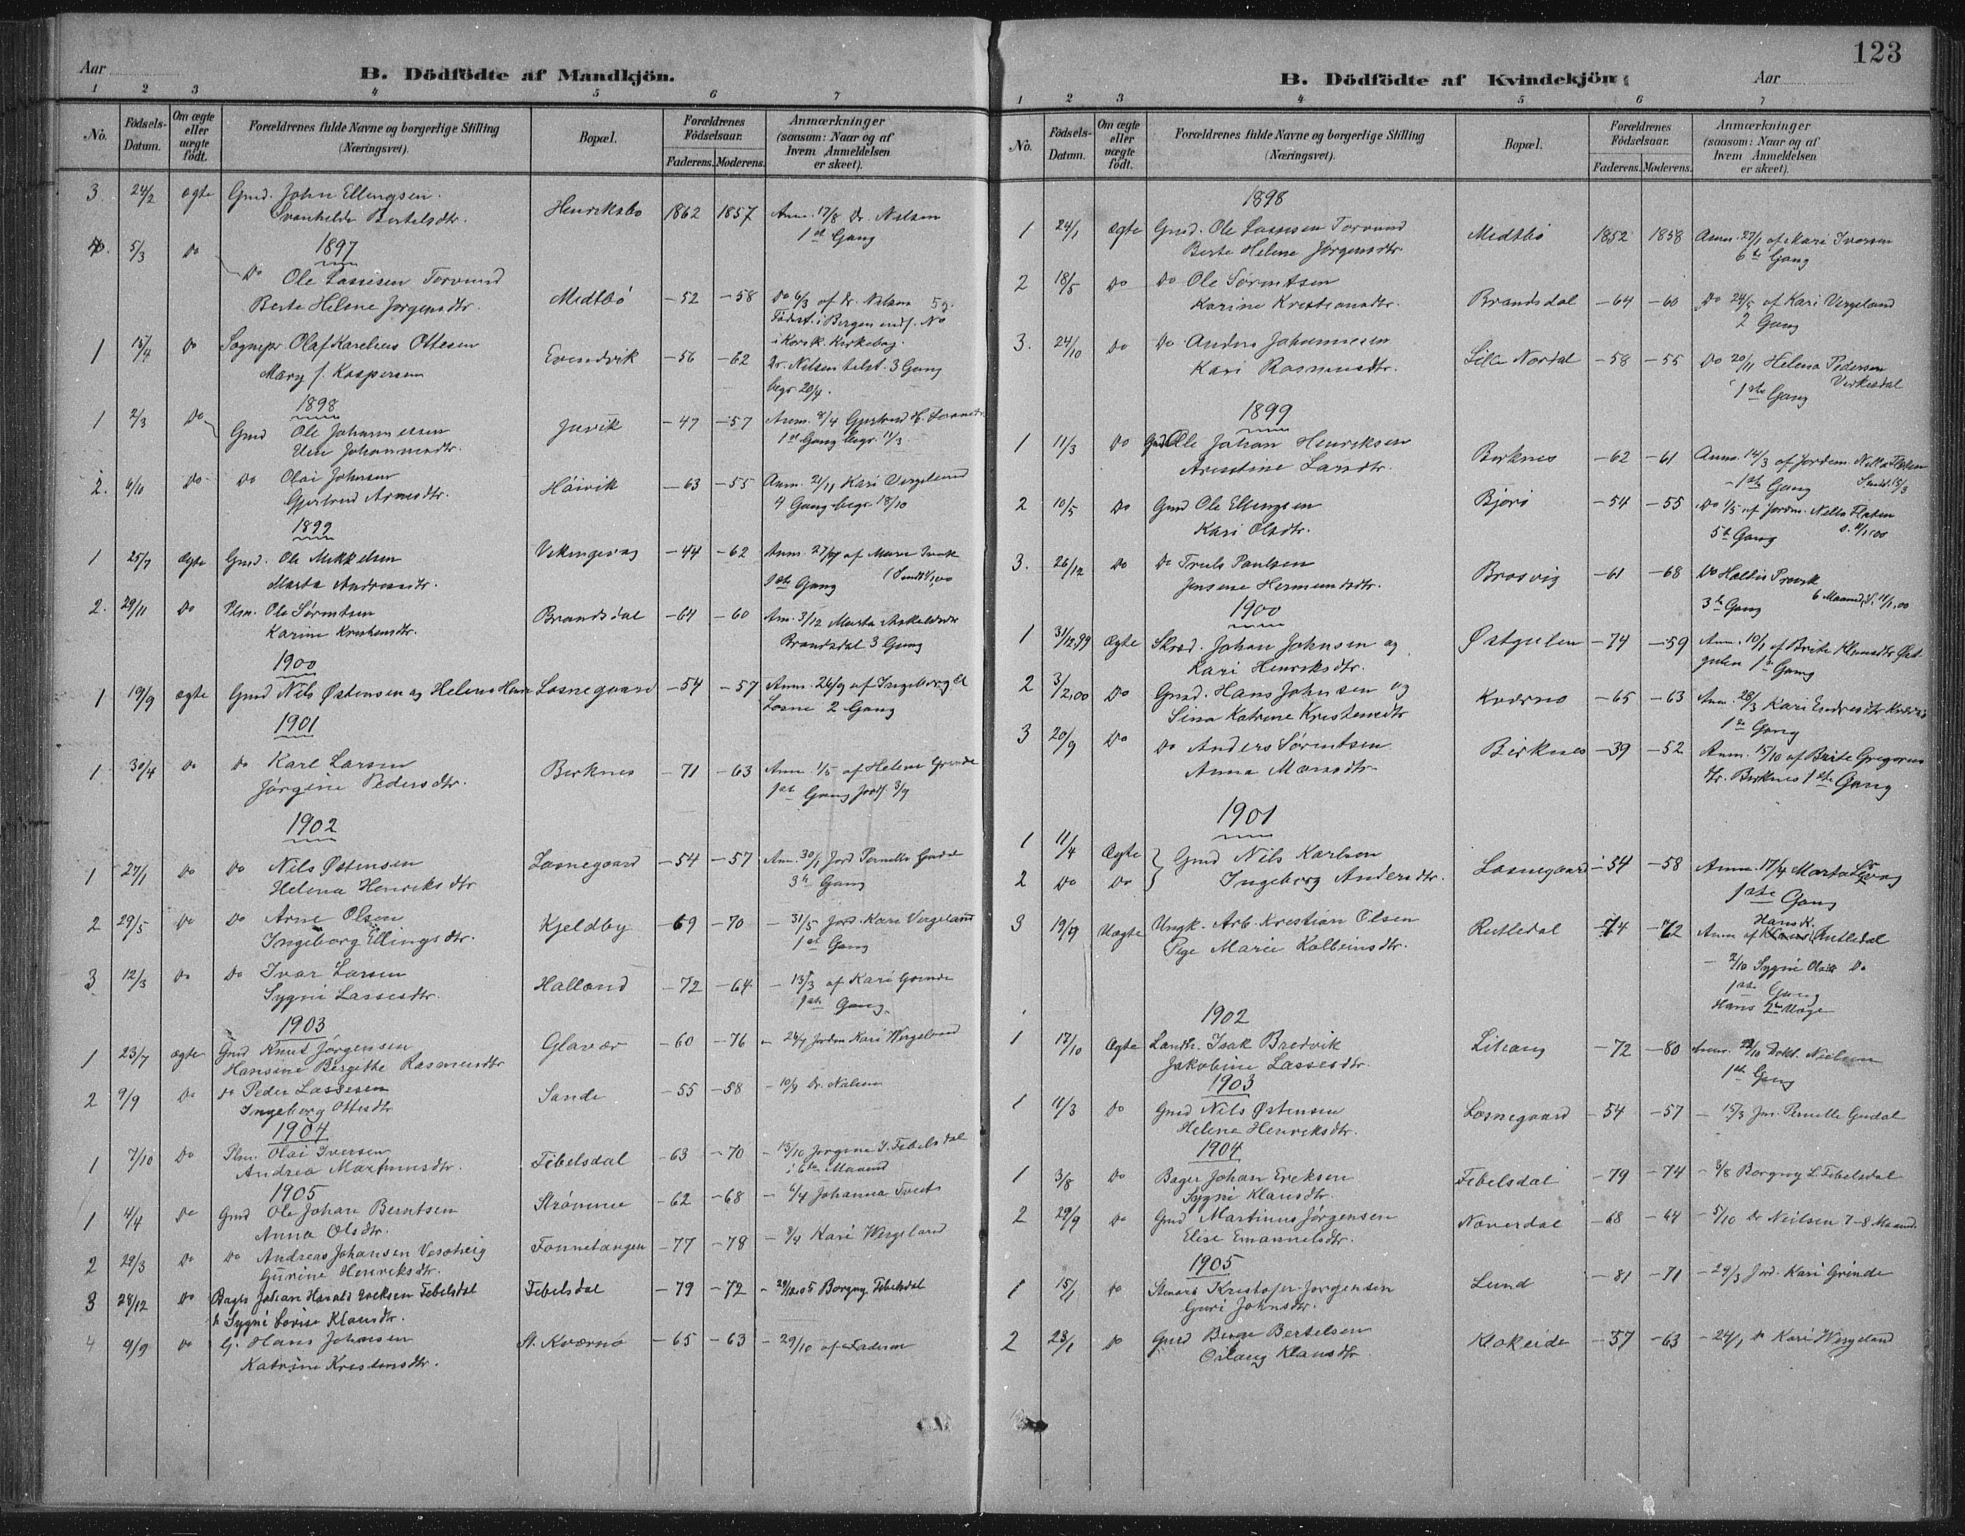 Aar
B. Dödfödte af Mandkjön.
1 2 3 4 5 6 7
No.
Födsels-Datum.
Om ægte eller uægte født.
Forældrenes fulde Navne og borgerlige Stilling (Næringsvei).
Bopæl.
Forældrenes Födselsaar.
Faderens. Moderens.
Anmærkninger (saasom: Naar og af hvem Anmeldelsen er skeet).
3 24/2 ægte Gmd. John Ellingsen Henriksbø 1862 1857 Anm. 17/8 Dr. Nilsen
Svanhilde Bertelsdtr. 1st Gang
1897
5/3 Do Do Ole Lassesen Torvund
Berte Helene Jørgensdtr. Midtbö -52 -58 Do 6/3 af Dr. Nilsen 5 g.
1 15/4 Do Sognepr. Olaf Karelius Ottesen Evindvik -56 -62
Mary f. Kaspersen Dr. Nilsen 3 Gang
begr. 20/4.
1898
1 2/3 Do Gmd Ole Johannessen Juvik -47 -57 Anm. 8/4 Gjertrud H.
Johannesdtr. 1st Gang begr. 11/3.
2. 6/10 Do Do Olai Johnsen Höivik -63 -55 Anm. 21/11 Kari Vergelund
Gjertrud Arnesdtr. 4 Gang begr. 18/10
1899
1 25/7 ægte Gmd. Ole Mikkelsen Vikingevaag -44 -62 Anm. 27/7 af
Marta Andreasdtr. 1ste Gang
2. 29/11 Do Plm. Ole Sørentsen Brandsdal -64 -60 Anm. 3/12 Marta Askeldsdtr
Karine Kristiansdtr. Brandsdal 3 Gang
1900
1 19/9 ægte Gmd Nils Østensen og Helene Henr Losnegaard -54 -57 Anm. 26/9 af Ingeborg
Losne 2 Gang
1901
1 30/4 Do Do Karl Larsen Birknes -71 -63 Anm. 1/5 af Helene Grinde
Jørgine Pedersdtr. 1ste Gang
1902
1 27/1 Do Do Nils Østensen Losnegaard -54 -57 Anm. 30/1 Jord Pernille
Helena Henriksdtr 3die Gang
2 29/5 Do Do Arne Olsen Kjeldby -69 -70 - 31/5 Jord. Kari Vergeland
Ingeborg Ellingsdtr. 1st Gang
3 12/3 Do Do Ivar Larsen Halland -72 -64 - 13/3 af Kari Grinde
Sygni Lassesdtr. 1ste Gang.
1903
1 23/7 ægte Gmd Knut Jørgensen Glavær -60 -76 - 24/7 Jordm Kari Wergeland
Hansine Bergithe Rasmusdtr
2 9/9 Do Do Peder Lassesen Sande -55 -58 - 10/9 Dr. Nilsen
Ingeborg Ottesdtr
1904
1 7/10 Do Plm. Olai Iversen Tibelsdal -63 -70 - 13/10 Jørgine J. Febelsdal
Andrea Martinusdtr. i 6te Maaned
1905
1 4/4 Do Gmd Ole Johan Berntsen Strømme -62 -68 - 6/4 Johanna Tveit
Anna Olsdtr.
2 29/3 Do Do Andreas Johansen Fonnetangen -77 -78 - 8/4 Kari Wergeland
Gurine Henriksdtr.
3 28/12 Do Bager Johan Harald Ereksen Febelsdal Febelsdal -79 -72 - 29/12 05 Borgny Febelsdal
& Sygni Lovise Klausdtr.
4 9/9 Do G. Hans Johnsen St. Kværnø -65 -63 - 29/10 af Faderen
Katrine Kristensdtr.
123
B. Dödfödte af Kvindekjön
Aar
1 2 3 4 5 6 7
No.
Födsels-Datum.
Om ægte eller uægte födt.
Forældrenes fulde Navne og borgerlige Stilling (Næringsvei).
Bopæl.
Forældrenes Födselsaar.
Faderens. Moderens.
Anmærkninger (saasom: Naar og af hvem Anmeldelsen er skeet).
1898
1 24/1 ægte Gmd. Ole Lassesen Torvund Midtbö 1852 1858 Anm. 27/1 af Kari Iversen
Berte Helene Jørgensdtr. 6te Gang
2 18/5 Do Do Ole Sørentsen Brandsdal -64 -60 Do 24/5 af Kari Vergeland
Karine Kristiansdtr. 2 Gang
3. 24/10 Do Do Anders Johannesen Lille Nordal -58 -55 Do 20/11 Helena Pedersen
Kari Rasmusdtr. 1ste Gang Virkesdal
1899
1 11/3 Do Gmd Ole Johan Henriksen Birknes -62 -61 Anm. 14/3 af Jordm. Nella Flaten
1ste Gang
2 10/5 Do Gmd Ole Ellingsen Bjørø -54 -55 Do 1/5 af Jordm. Nella Flaten
Kari Olsdtr. 5te Gang
3. 26/12 Do Do Truls Paulsen Brosvig -61 -68 Do
Jensine Hermundsdtr. 3die Gang
1900
1 31/12.99 ægte Skræd. Johan Johnsen og Østgulen -74 -59 Anm. 10/1 af Brite Klausdtr. Øst
Kari Henriksdtr. gulen 1ste Gang
2 3/2.00 Do Gmd. Hans Johnsen og Kværnø -65 -63 Anm. 28/3 Kari Endresdtr
Sina Katrine Kristensdtr 1ste Gang
3 20/9 Do Do Anders Sørentsen Birknes -39 -52 Anm. 15/10 af Brite Gregorius
Anna Monsdtr. dtr. Birknes 1ste Gang
1901
1 11/4 Ægte Gmd Nils Karlsen
2 Do Do Ingeborg Andersdtr. Losnegaard -54 -58 Anm. 17/4 Marta
1ste Gang
3 19/9 Uægte Ungk. Arb. Kristian Olsen Rutledal -74 -72 Anm af Hans K. Rutledal
Pige Marie Kolbeinsdtr. - 2/10 Sygni Do
1ste Gang
Hans 2den Uæge
1902
1 17/10 Ægte Landh. Isak Bredvik Lihaug -72 -80 Anm. 22/10 Dokt. Nielsen
Jakobine Lassesdtr. 1ste Gang
1903
1 11/3 Do Gmd Nils Østensen Losnegaard -54 -57 - 15/3 Jm. Pernille Gudal
Helene Henriksdtr.
1904
1 3/8 Do Bager Johan Ereksen Febelsdal -79 -74 - 3/8 Borgny L Febelsdal
Sygni Klausdtr.
2 29/9 Do Gmd Martinus Jørgensen Noverdal -68 -64 - 5/10 Dr Neilsen 7-8 Maaned
Elise Emanuelsdtr.
1905
1 15/1 Do Kristofer Jørgensen Lund -81 -71 - 29/3 Jor. Kari Grinde
Guri Johnsdtr.
2 23/1 Do Gmd Børge Bertelsen Klakeide -57 -63 - 24/1 Do Kari Wergeland
Oilaug Klausdtr.